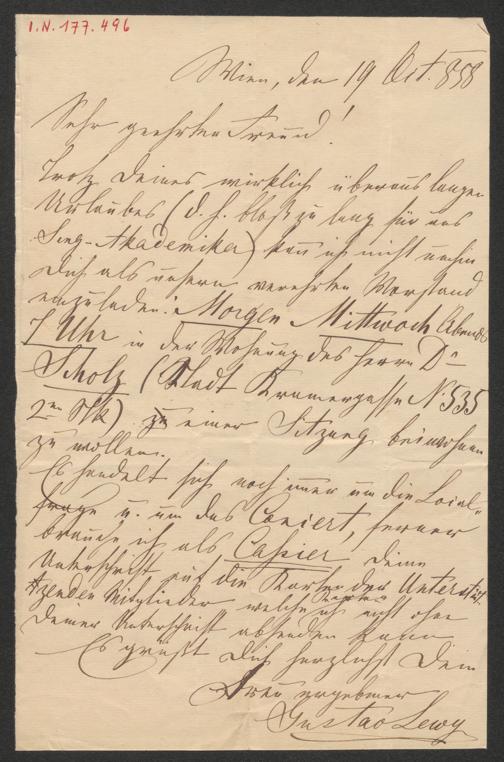 I.N. 177.496
Wien, den 19 Oct. 858
Sehr geehrter Freund!
Trotz Deines wirklich überaus langen
Urlaubes (d. h. bloß zu lang für uns
Sing-Akademiker) kann ich nicht umhin
Dich als unsern verehrten Vorstand
einzuladen: Morgen Mittwoch Abends
7 Uhr in der Wohnung des Herrn Dr
Scholz (Stadt Kramergasse No 535
2ten Stk) zu einer Sitzung beiwohnen
zu wollen.
Es handelt sich noch immer um die Local-
frage u. um das Concert, ferner
brauche ich als Cassier Deine
Unterschrift auf die Karten der Unterstüt-
tzenden Mitglieder welche ich nicht ohne
Deiner Unterschrift absenden kann
Es grüßt Dich herzlichst Dein
Treu ergebener
Gustav Lewy